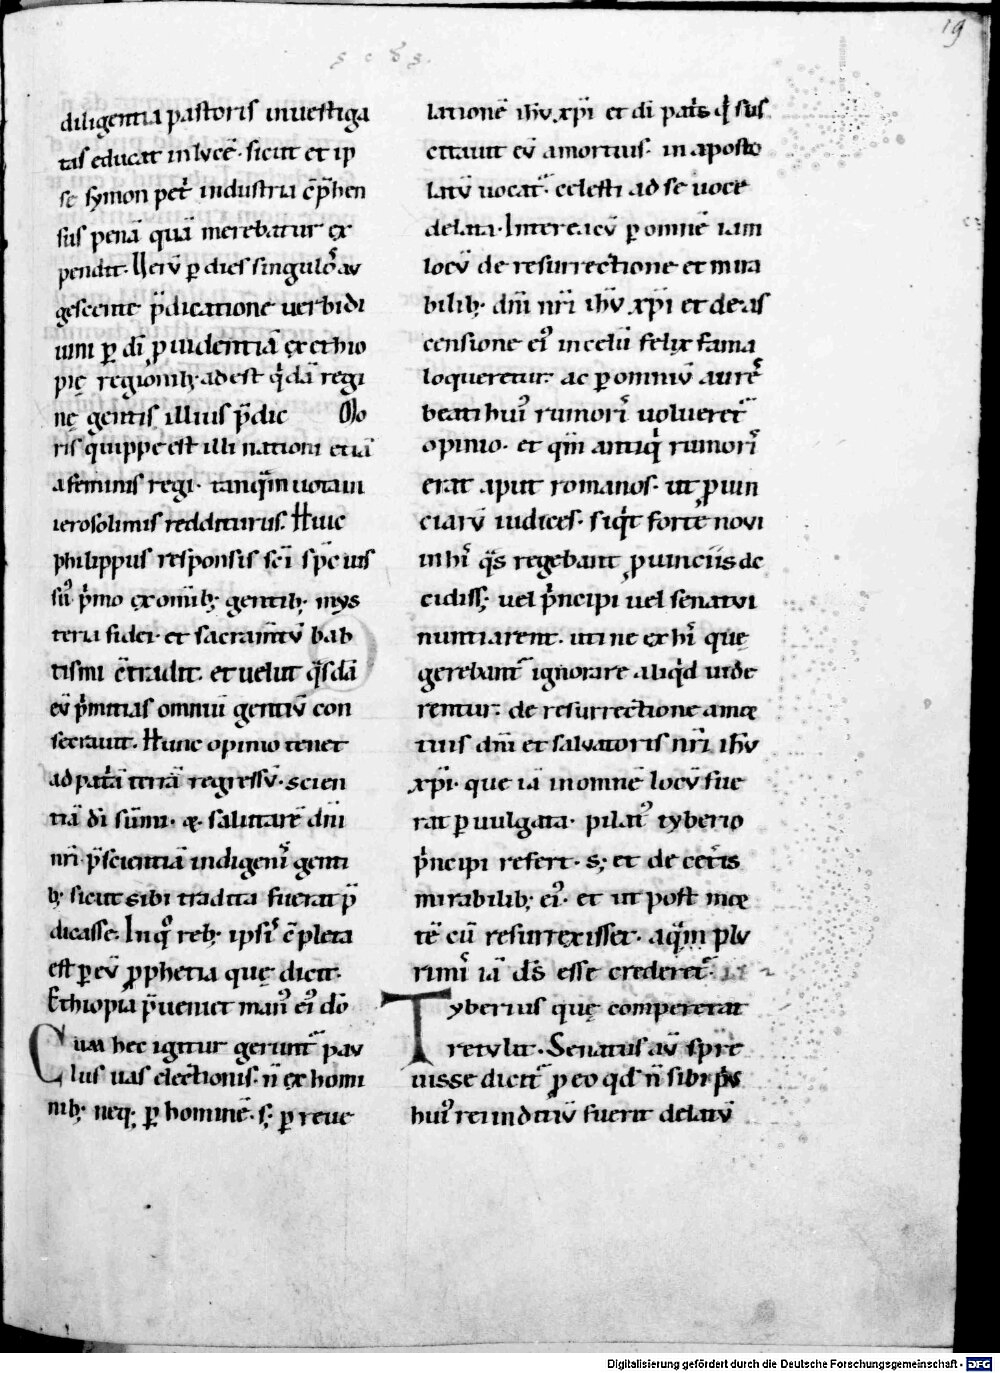 19
diligentia pastoris inuestiga
tas educat in lvcē. sicut et ip
se symon pet̄ industria c̄p̄hen
sus penā quā merebatur ex
pendit. Verv̄ ꝑ dies singulos av
gescente p̄dicatione uerbi di
uini ꝑ dī ꝓuidentiā ex ethio
pię regionib; adest q̄dā regi
nę gentis illius p̄dic Mo
ris quippe est illi nationi etiā
a feminis regi. tanq̄m uota in
ierosolimis redditurus. Hunc
philippus responsis sc̄i sp̄c uis
sū p̄mo ex omīb; gentib; mys
teria fidei. et sacramtv̄ bab
tismi ētradit. et uelut q̄sdā
ev̄ p̄mitias omniū gentiv̄ con
secrauit. Hunc opinio tenet
ad pat̄ā terrā regressv̄. scien
tiā dī sūmi. ꝫ salutarē dn̄i
nr̄i p̄scientiā indigenis genti
b; sicut sibi tradita fuerat p̄
dicasse. In quo reb; ipsis c̄pleta
est ꝑ ev̄ ꝓphetia quę dicit.
Ethiopia p̄ueniet man᾽ ei᾽ dō
Cum hec igitur gerunt᾽ pav
lus uas electionis. n̄ ex homi
nib; neq; ꝑ hominē. s; ꝑ reue
lationē ihv̄ xp̄i et dī patis q̄ sus
citauit ev̄ a mortuis. in aposto
latv̄ uocat᾽. celesti ad se uoce
delata. Interea cv̄ ꝑ omnē iam
locv̄ de resurrectione et mira
bilib; dn̄i nr̄i ihv̄ xp̄i et de as
censione ei᾽ in celū felix fama
loqueretur. ac ꝑ omniv̄ aures
beati hui᾽ rumoris uolueret᾽
opinio. et qm̄ antiq̄ rumoris
erat aput romanos. ut ꝓuin
ciarv̄ iudices. siq̄t forte novi
in his q̄s regebant ꝓuinciis ac
cidiss; uel p̄ncipi uel senatvi
nuntiarent. uti ne ex his quę
gerebant᾽ ignorare aliq̄d uide
rentur. de resurrectione a moe
tuis dn̄i et saluatoris nr̄i ihv̄
xp̄i. que iā in omnē locv̄ fue
rat ꝑuulgata. pilat᾽ tyberio
p̄ncipi refert. s; et de cet̄is
mirabilib; ei᾽. et ut post moe
tē cū resurrexisset. a q̄m plv
rimis iā ds̄ esse crederet᾽.
Tyberius quę compererat
retvlit. Senatus av̄ spre
uisse dicit᾽ ꝓ eo qd̄ n̄ sibi p̄vs
hui᾽ rei inditiv̄ fuerit delatv̄
Digitalisierung gefördert durch die Deutsche Forschungsgemeinschaft - DFG